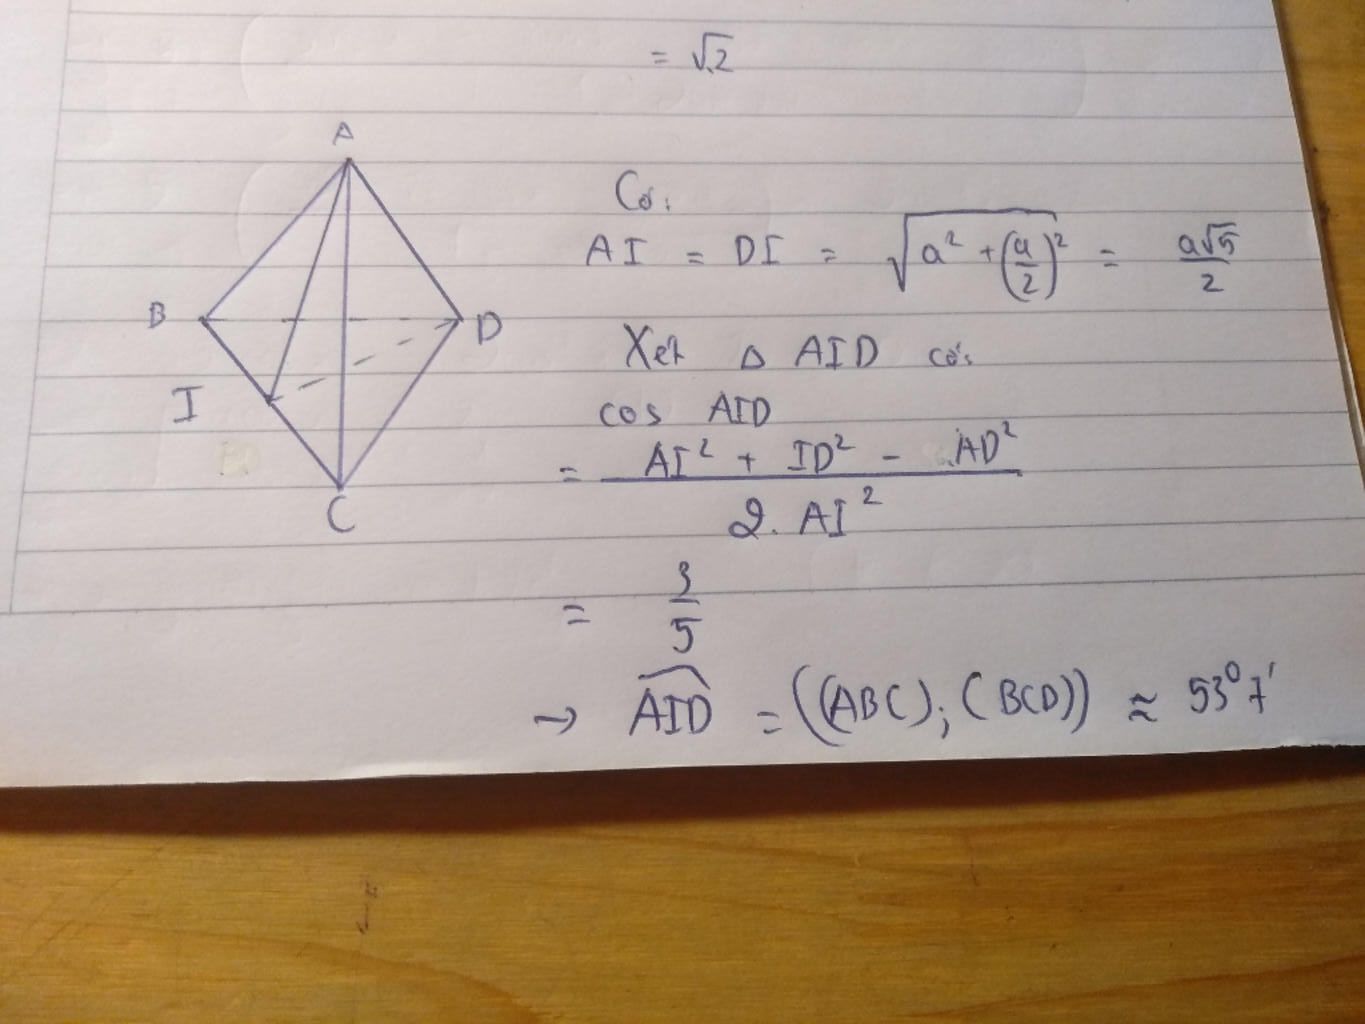 = √2
A
B
D
I
C
Có:
AI = DI = √(a² + (a/2)²) = a√5/2
Xét Δ AID có:
cos AID
= (AI² + ID² - AD²) / (2. AI²)
= 3/5
→ AID = ((ABC); (BCD)) ≈ 53°7'